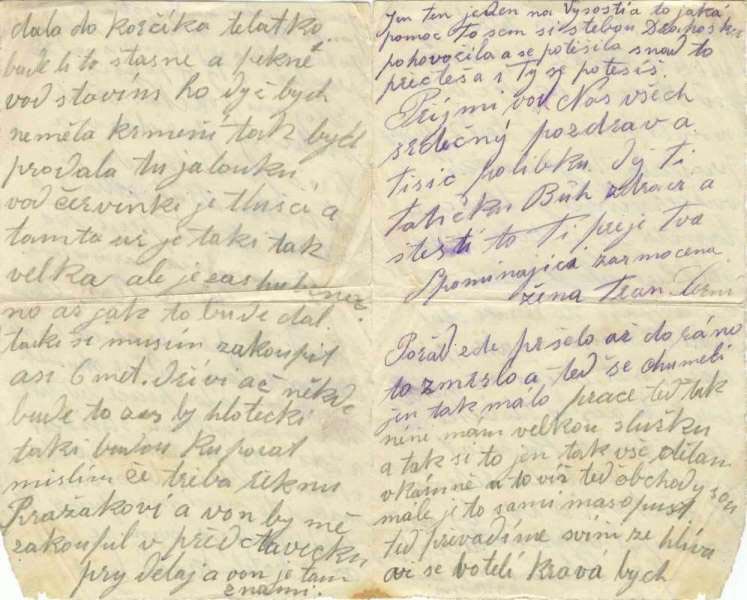 dala do korčíka telatko
bude li to stasne a pekně
vod stavím ho dyč bych
neměla krmení tak bych
prodala tu jalouku
vod červinki je tlusčí a
tamta už je taki tak
velka ale je zas
no až jak to bude dál
taki si musim zakoupit
asi 6 met. dříví ač někde
bude to zas by hlotecki
taki budou kupovat
mislím če třeba řeknu
Pražakovi a von by mě
zakoupil v před
pry delaj a von je tam
znami.
Jen ten jeden na Vysostia to jaka
pomoc to sem si stebou
pohovočila a se potěšila snad to
přečteša i Ty se potesiš.
Prijmi vod Nas všech
srdečný pozdrav a
tisic polibku. Dej ti
tatičku Bůh zdraví a
stesti to Ti preje Tva
zarmocena
žena
Pořad zde pršelo až do ráno
to zmrzlo a teď se chumeli
jen tak málo prace teď tak
neni mám velkou slušku
a tak si to jen tak vše dělam
v kamně a to víš teď obchody sou
male je to sami masopust
teď prevadíme svim ze hlíva
až se votelí kravá bych